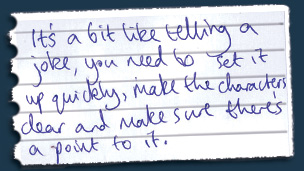 It's a bit like telling a
joke, you need to set it
up quickly, make the characters
clear and make sure there's
a point to it.